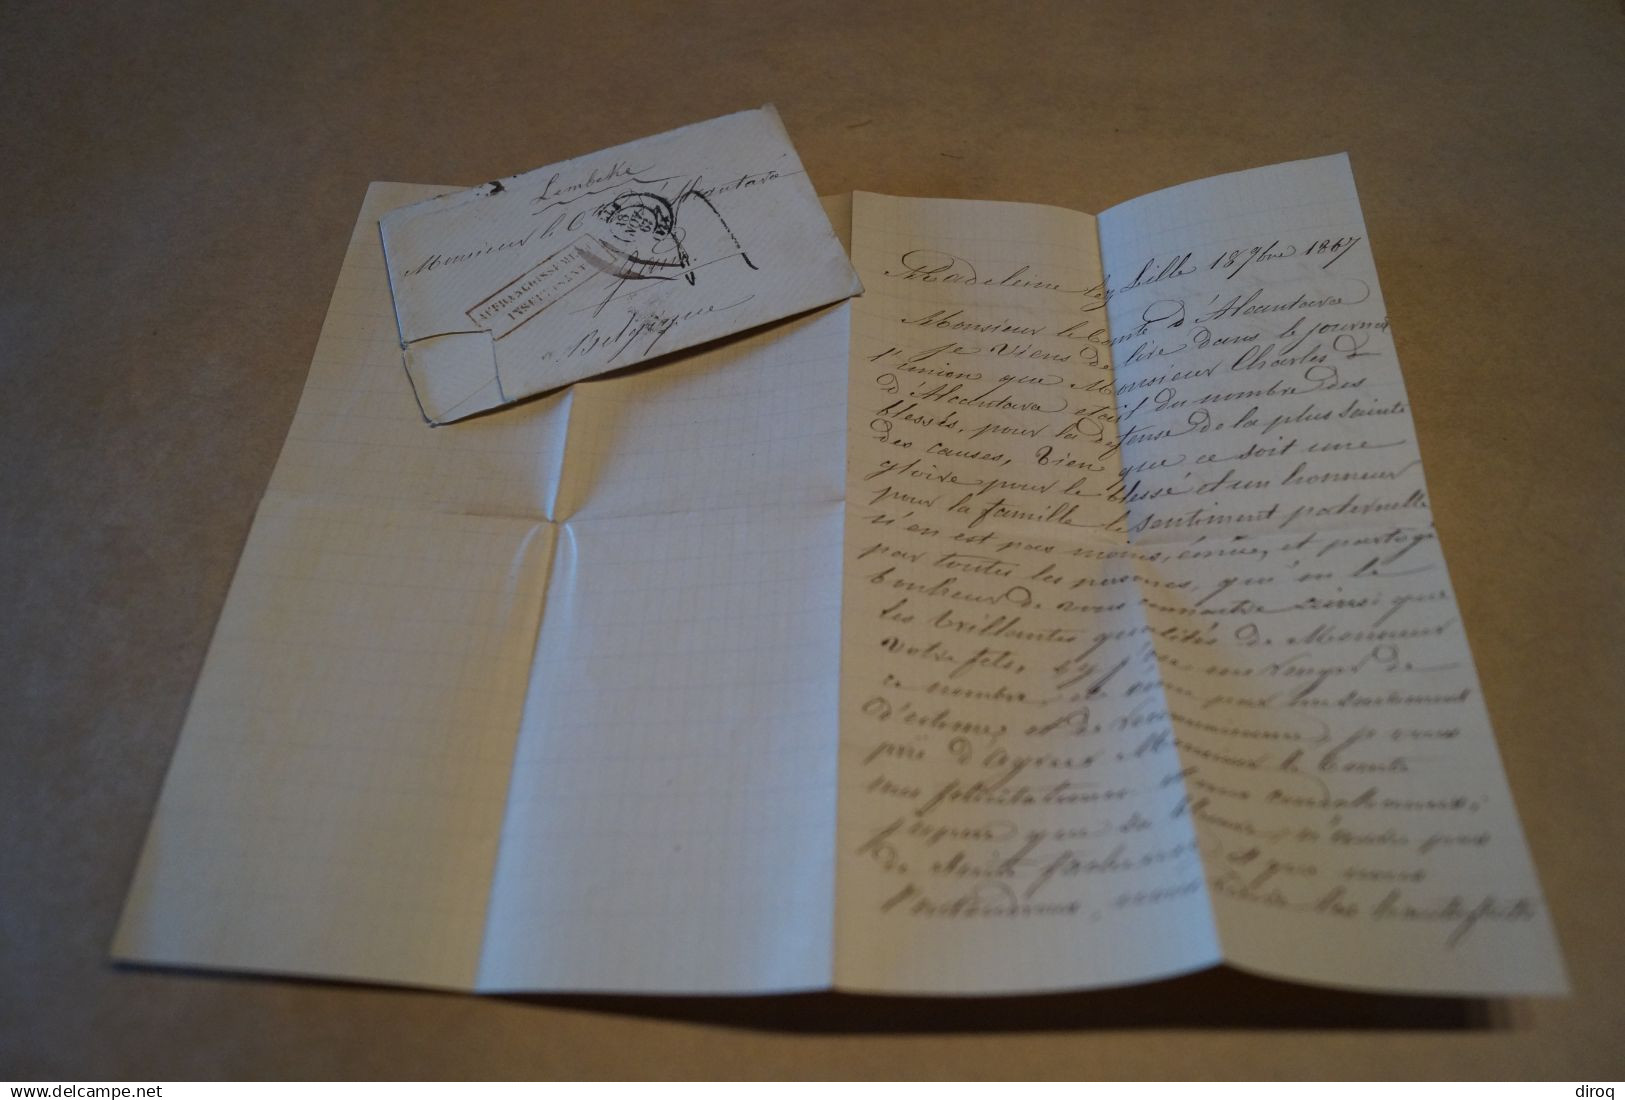 Lembeke
Monsieur le Cte d'Alcantara
18
NOV
67
AFFRANCHISSEMENT
INSUFFISANT
Belgique
Madeleine lez Lille 18 9bre 1867
Monsieur le Comte d'Alcantara
je viens de lire dans le journal
l'union que Monsieur Charles
d'Alcantara etait du nombre des
blessés, pour la defense de la plus sainte
des causes, bien que ce soit une
gloire pour le blessé et un honneur
pour la famille le sentiment paternelle
n'en est pas moins, émue, et partagé
par toutes les personnes, qui'on le
bonheur de vous connaitre ainsi que
les brillantes qualités de Monsieur
votre fils, si j'ose me ranger de
ce nombre, par un sentiment
d'estime, et de je vous
prie d'agréer Monsieur le Comte
mes félicitations
que sa n'aura pas
de et que nous